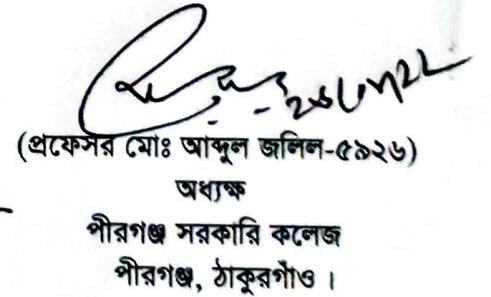 (প্রফেসর মোঃ আব্দুল জলিল-৫৯২৬)
অধ্যক্ষ
পীরগঞ্জ সরকারি কলেজ
পীরগঞ্জ, ঠাকুরগাঁও ।